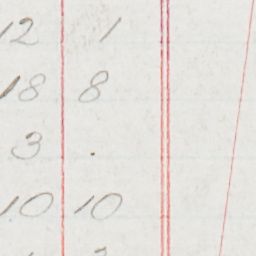 12 1
18 8
3 .
10 10